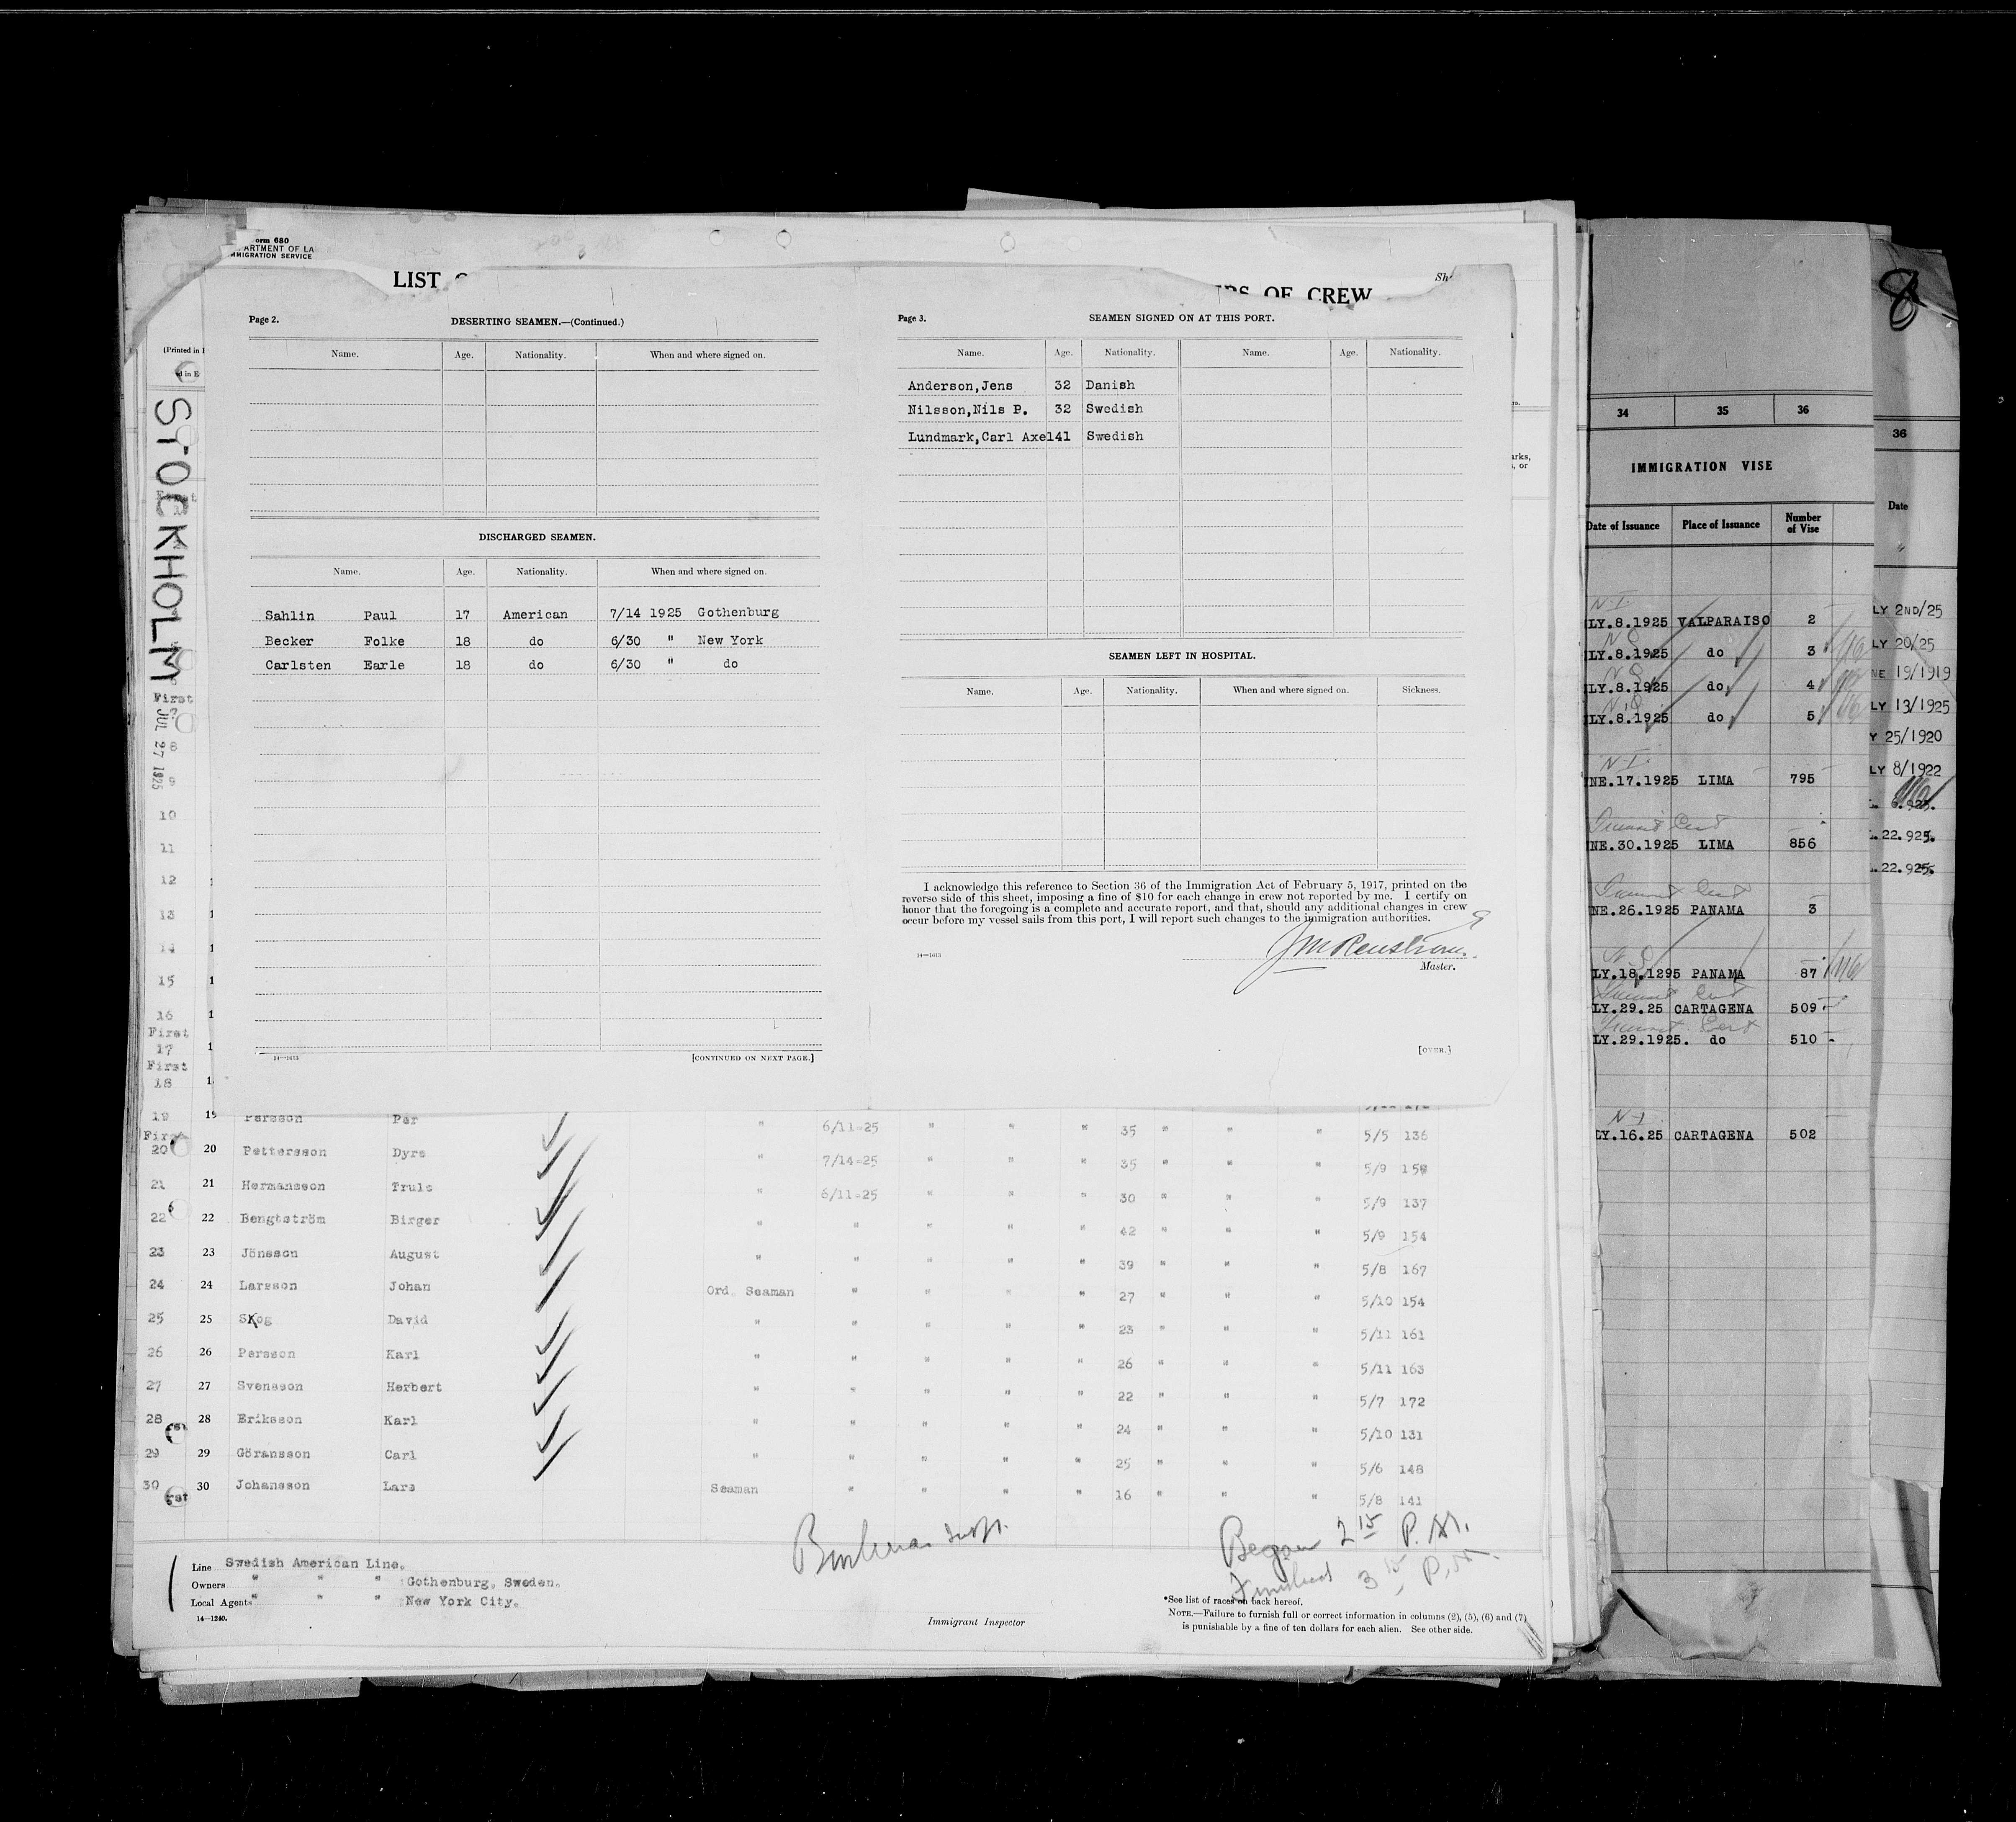 orm 680
ARTMENT OF LA
MMIGRATION SERVICE
LIST
OF CREW
Sh
(Printed in
STOCKHOLM
JUL 27 1925
Page 2.
DESERTING SEAMEN.—(Continued.)
Name. Age. Nationality. When and where signed on.
DISCHARGED SEAMEN.
Name. Age. Nationality. When and where signed on.
Sahlin Paul 17 American 7/14 1925 Gothenburg
Becker Folke 18 do 6/30 " New York
Carlsten Earle 18 do 6/30 " do
14—1613
[CONTINUED ON NEXT PAGE.]
Page 3.
SEAMEN SIGNED ON AT THIS PORT.
Name. Age. Nationality. Name. Age. Nationality.
Anderson,Jens 32 Danish
Nilsson,Nils P. 32 Swedish
Lundmark,Carl Axel41 Swedish
SEAMEN LEFT IN HOSPITAL.
Name. Age. Nationality. When and where signed on. Sickness.
I acknowledge this reference to Section 36 of the Immigration Act of February 5, 1917, printed on the
reverse side of this sheet, imposing a fine of $10 for each change in crew not reported by me. I certify on
honor that the foregoing is a complete and accurate report, and that, should any additional changes in crew
occur before my vessel sails from this port, I will report such changes to the immigration authorities.
14—1613
Master.
[OVER.]
First
8
9
10
11
12
13
14
15
16
First
17
First
18
19 19 Persson Per " 6/11-25 " " " 35 " " " 5/5 136
20 20 Pettersson Dyre " 7/14-25 " " " 35 " " " 5/9 158
21 21 Hermansson Truls " 6/11-25 " " " 30 " " " 5/9 137
22 22 Bengtström Birger " " " " " 42 " " " 5/9 154
23 23 Jönsson August " " " " " 39 " " " 5/8 167
24 24 Larsson Johan Ord. Seaman " " " " 27 " " " 5/10 154
25 25 Skog David " " " " " 23 " " " 5/11 161
26 26 Persson Karl " " " " " 26 " " " 5/11 163
27 27 Svensson Herbert " " " " " 22 " " " 5/7 172
28 28 Eriksson Karl " " " " " 24 " " " 5/10 131
29 29 Göransson Carl " " " " " 25 " " " 5/6 148
30 30 Johansson Lars Seaman " " " " 16 " " " 5/8 141
Began 2 15 P.M.
Finished 3 15 P.M.
Line Swedish American Line.
Owners " " " Gothenburg, Sweden.
Local Agents " " " New York City.
14—1240.
Immigrant Inspector
*See list of races on back hereof.
NOTE.—Failure to furnish full or correct information in columns (2), (5), (6) and (7)
is punishable by a fine of ten dollars for each alien. See other side.
34 35 36
IMMIGRATION VISE
Date of Issuance Place of Issuance Number of Vise
N-I
LY.8.1925 VALPARAISO 2
LY.8.1925 do 3
LY.8.1925 do 4
LY.8.1925 do 5
N-I
NE.17.1925 LIMA 795
NE.30.1925 LIMA 856
NE.26.1925 PANAMA 3
LY.18.1295 PANAMA 87
LY.29.25 CARTAGENA 509
LY.29.1925. do 510
N-I
LY.16.25 CARTAGENA 502
8
36
Date
LY 2ND/25
LY 20/25
NE 19/1919
LY 13/1925
Y 25/1920
LY 8/1922
L. 6.925.
L.22.925.
L.22.925.